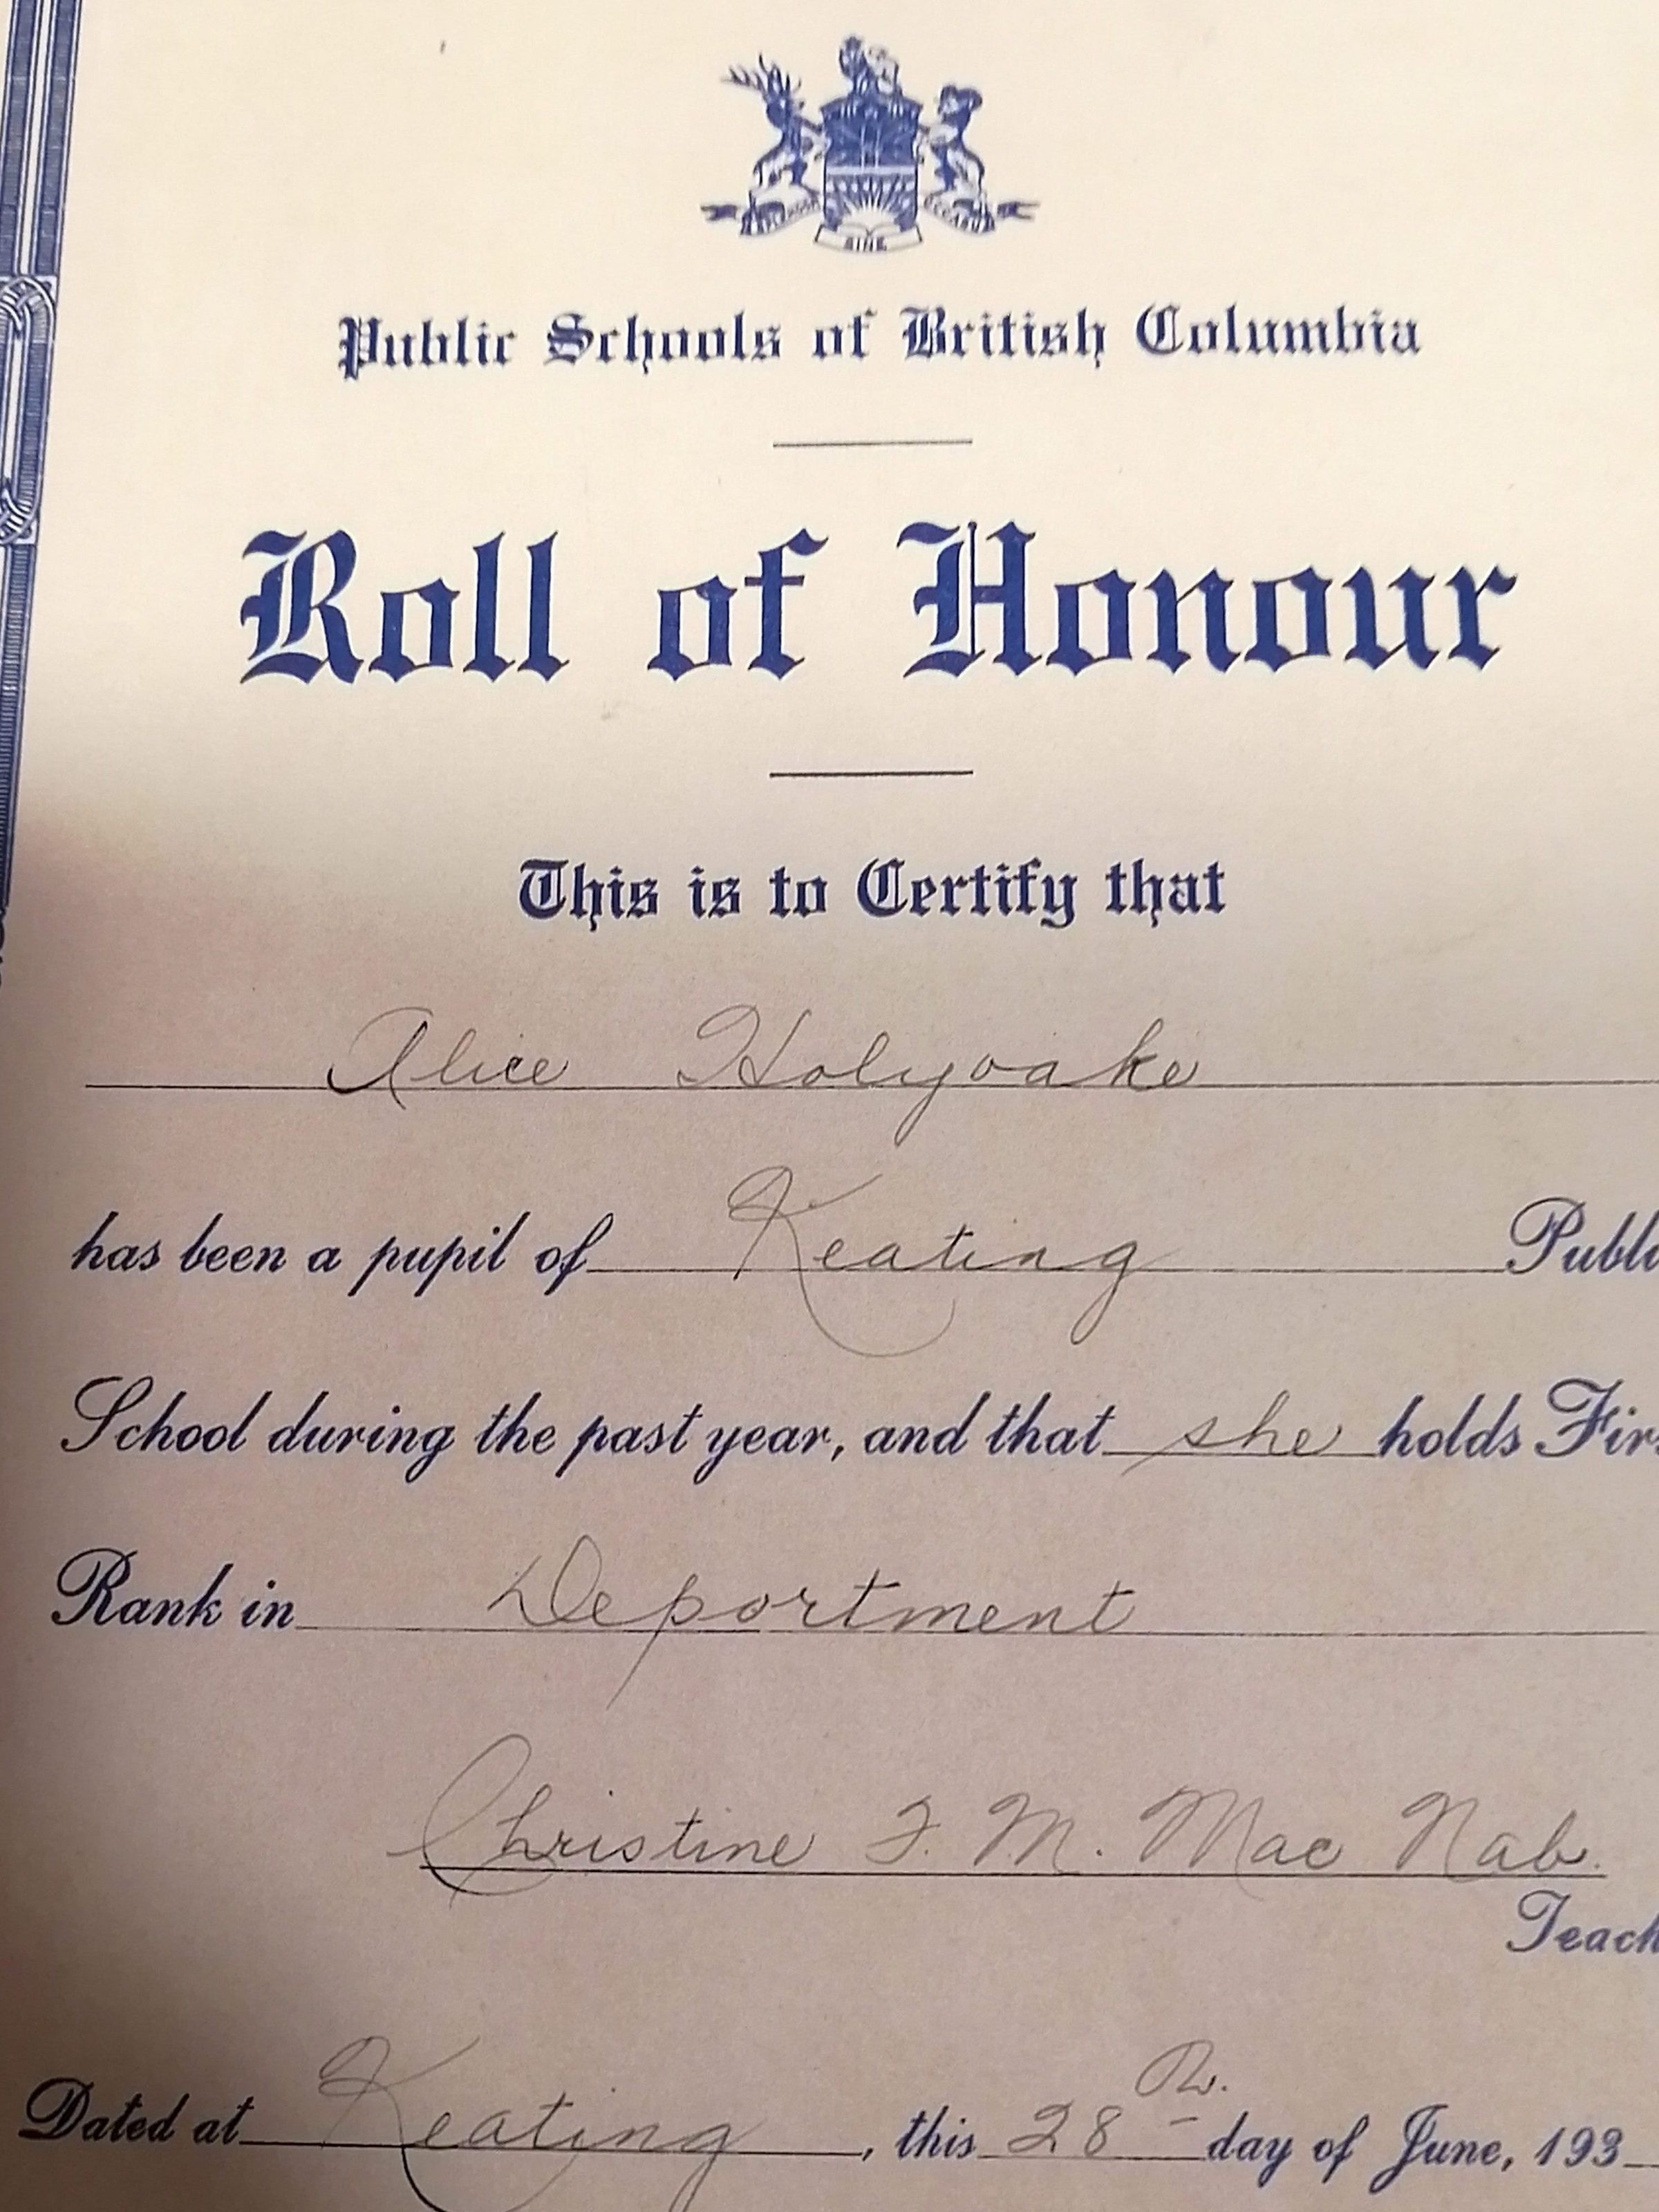 SPLENDOR SINE OCCASU
Public Schools of British Columbia
Roll of Honour
This is to Certify that
Alice Holyoake
has been a pupil of Keating Publi
School during the past year, and that she holds Firs
Rank in Deportment
Christine F. M. Mac Nab.
Teach
Dated at Keating, this 28 day of June, 193